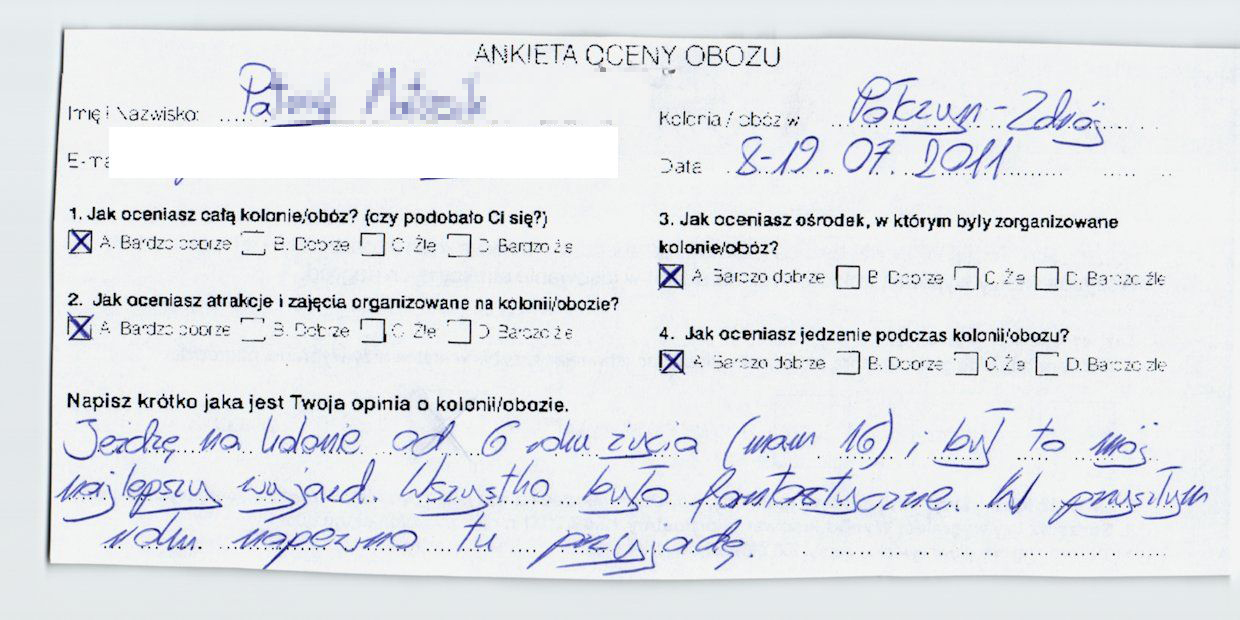 ANKIETA OCENY OBOZU
Imię i Nazwisko:
Kolonia / obóz w Połczyn-Zdrój
Data 8-19.07.2011
1. Jak oceniasz całą kolonie/obóz? (czy podobało Ci się?)
A. Bardzo dobrze B. Dobrze C. Źle D. Bardzo źle
2. Jak oceniasz atrakcje i zajęcia organizowane na kolonii/obozie?
A. Bardzo dobrze B. Dobrze C. Źle D. Bardzo źle
3. Jak oceniasz ośrodek, w którym były zorganizowane
kolonie/obóz?
A. Bardzo dobrze B. Dobrze C. Źle D. Bardzo źle
4. Jak oceniasz jedzenie podczas kolonii/obozu?
A. Bardzo dobrze B. Dobrze C. Źle D. Bardzo źle
Napisz krótko jaka jest Twoja opinia o kolonii/obozie.
Jeżdżę na kolonie od 6 roku życia (mam 16) i był to mój
najlepszy wyjazd. Wszystko było fantastyczne. W przyszłym
roku napewno tu przyjadę.